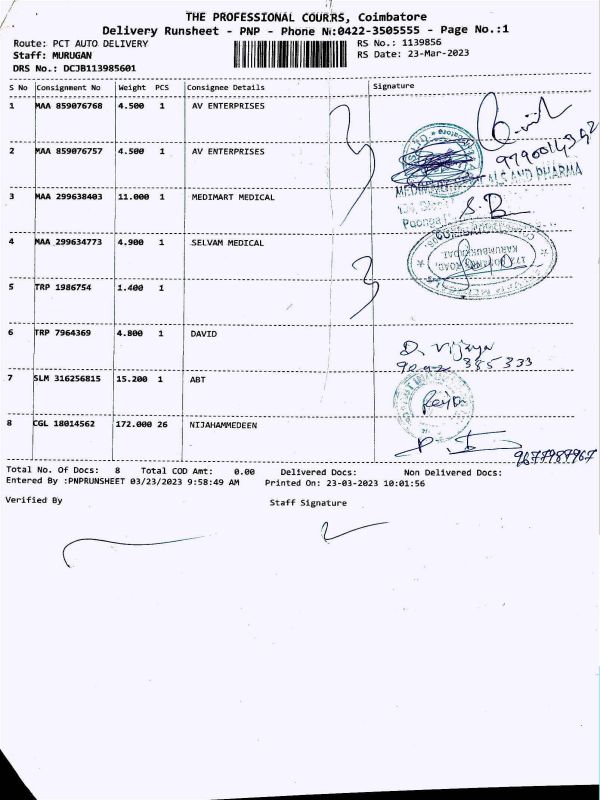 THE PROFESSIONAL COURRS, Coimbatore
Delivery Runsheet - PNP - Phone N:0422-3505555 - Page No.:1
Route: PCT AUTO DELIVERY RS No.: 1139856
Staff: MURUGAN RS Date: 23-Mar-2023
DRS No.: DCJB113985601
S No Consignment No Weight PCS Consignee Details Signature
1 MAA 859076768 4.500 1 AV ENTERPRISES
2 MAA 859076757 4.500 1 AV ENTERPRISES
3 MAA 299638403 11.000 1 MEDIMART MEDICAL
AND PHARMA
S.B
4 MAA 299634773 4.900 1 SELVAM MEDICAL
5 TRP 1986754 1.400 1
6 TRP 7964369 4.800 1 DAVID
D. Vijaya
7 SLM 316256815 15.200 1 ABT
8 CGL 18014562 172.000 26 NIJAHAMMEDEEN
9677987967
Total No. Of Docs: 8 Total COD Amt: 0.00 Delivered Docs: Non Delivered Docs:
Entered By :PNPRUNSHEET 03/23/2023 9:58:49 AM Printed On: 23-03-2023 10:01:56
Verified By Staff Signature